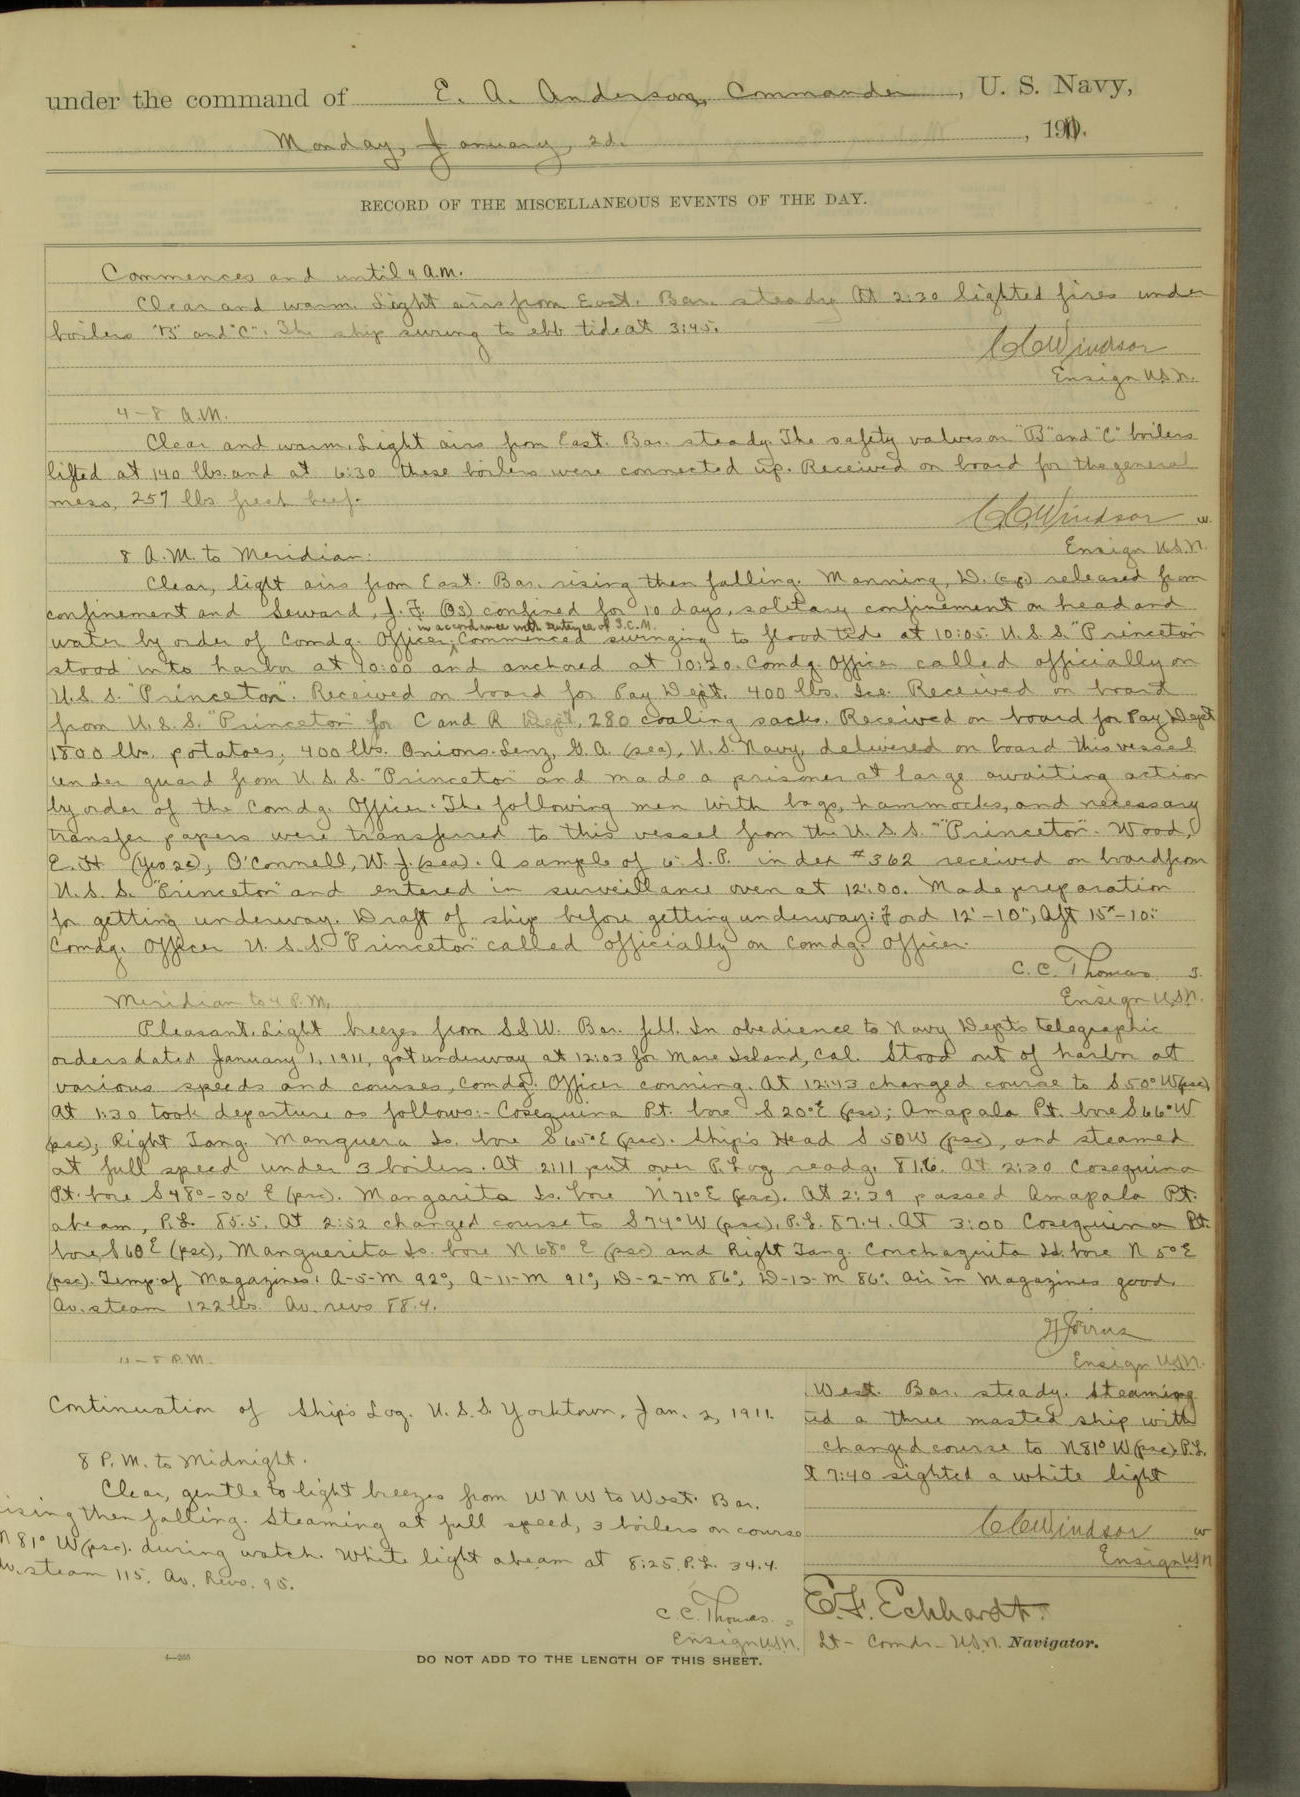 under the command of E. A. Anderson, Commander, U. S. Navy,
Monday, January 2d., 1911.
RECORD OF THE MISCELLANEOUS EVENTS OF THE DAY.
Commences and until 4 A.M.
Clear and warm. Light airs from East. Bar. steady. At 2:30 lighted fires under
boilers "B" and "C". The ship swung to ebb tide at 3:45.
C.C. Windsor
Ensign U.S.N.
4-8 A.M.
Clear and warm. Light airs from East. Bar. steady. The safety valves on "B" and "C" boilers
lifted at 140 lbs. and at 6:30 these boilers were connected up. Received on board for the general
mess, 257 lbs fresh beef.
C.C. Windsor w.
Ensign U.S.N.
8 A.M. to Meridian:
Clear, light airs from East. Bar. rising then falling. Manning, D. (cp) released from
confinement and Seward, J. F. (OS) confined for 10 days, solitary confinement on head and
in accordance with sentence of S.C.M.
water by order of Comdg. Officer, Commenced swinging to flood tide at 10:05. U.S.S. "Princeton"
stood into harbor at 10:00 and anchored at 10:30. Comdg. Officer called officially on
U.S.S. "Princeton". Received on board for Pay Dept. 400 lbs. Ice. Received on board
from U.S.S. "Princeton" for C and R Dept. 280 coaling sacks. Received on board for Pay Dept
1800 lbs. potatoes, 400 lbs. Onions. Lenz, G. A. (sea), U.S. Navy, delivered on board this vessel
under guard from U.S.S. "Princeton" and made a prisoner at large awaiting action
by order of the Comdg. Officer. The following men with bags, hammocks, and necessary
transfer papers were transferred to this vessel from the U.S.S. "Princeton". Wood,
E. H (Yeo 2c), O'Connell, W. J. (sea). A sample of 6" S.P. index #362 received on board from
U.S.S. "Princeton" and entered in surveillance oven at 12:00. Made preparation
for getting underway. Draft of ship before getting underway: Ford 12'-10", Aft 15'-10."
Comdg. Officer U.S.S. "Princeton" called officially on Comdg. Officer.
C. C. Thomas J.
Ensign U.S.N.
Meridian to 4 P.M.
Pleasant. Light breezes from SSW. Bar. fell. In obedience to Navy Dept's telegraphic
orders dated January 1, 1911, got underway at 12:03 for Mare Island, Cal. Stood out of harbor at
various speeds and courses, Comdg. Officer conning. At 12:43 changed course to S 50° W (psc)
At 1:30 took departure as follows:- Cosequina Pt. bore S 20° E (psc); Amapala Pt. bore S 66° W
(psc); Right Tang. Manguera Is. bore S 65° E (psc). Ship's Head S 50 W (psc), and steamed
at full speed under 3 boilers. At 2:11 put over P. Log readg. 81.6. At 2:30 Cosequina
Pt. bore S 48°-30' E (psc). Margarita Is. bore N 71° E (psc). At 2:39 passed Amapala Pt.
abeam, P.L. 85.5. At 2:52 changed course to S 74° W (psc), P.L. 87.4. At 3:00 Cosequina Pt.
bore S 60 E (psc), Manguerita Is. bore N 68° E (psc) and Right Tang. Conchaguita Id. bore N 5° E
(psc). Temp. of Magazines: A-5-M 92°, A-11-M 91°, D-2-M 86°, D-13-M 86°. Air in Magazines good.
Av. steam 122 lbs. Av. revs 88.4.
Ensign U.S.N.
4-8 P.M.
West. Bar. steady. Steaming
ted a three masted ship with
changed course to N 81° W (psc). P.L.
t 7:40 sighted a white light
C.C. Windsor w
Ensign U.S.N
Continuation of Ship's Log. U.S.S. Yorktown. Jan. 2, 1911.
8 P.M. to Midnight.
Clear, gentle to light breezes from WNW to West. Bar.
ising then falling. Steaming at full speed, 3 boilers on course
N 81° W (psc). during watch. White light abeam at 8:25, P.L. 34.4.
Av. steam 115. Av. Revs. 95.
C. C. Thomas. J
Ensign U.S.N.
E. F. Eckhardt.
Lt - Comdr - U.S.N. Navigator.
4—266
DO NOT ADD TO THE LENGTH OF THIS SHEET.